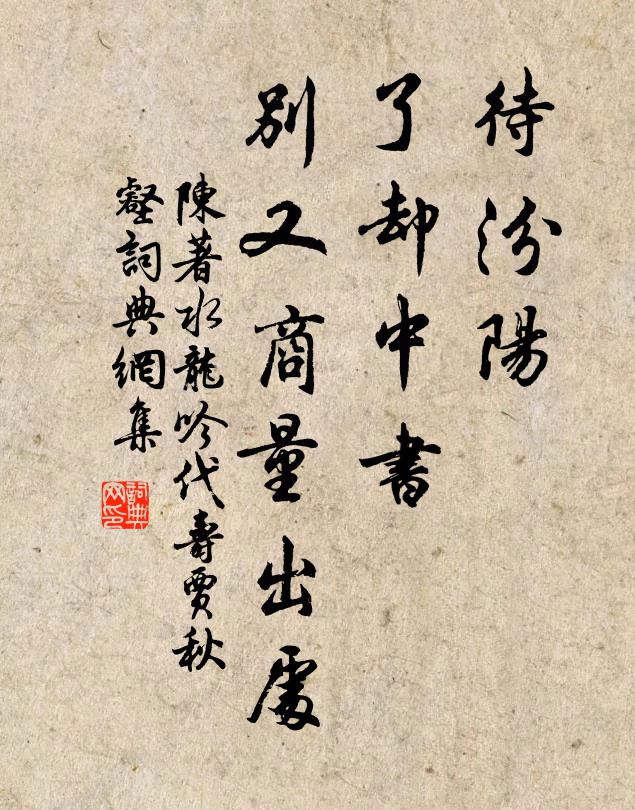 待汾陽
了却中書
別又商量出處
陳著水龍吟代壽賈秋
壑詞典網集
詞典
网印